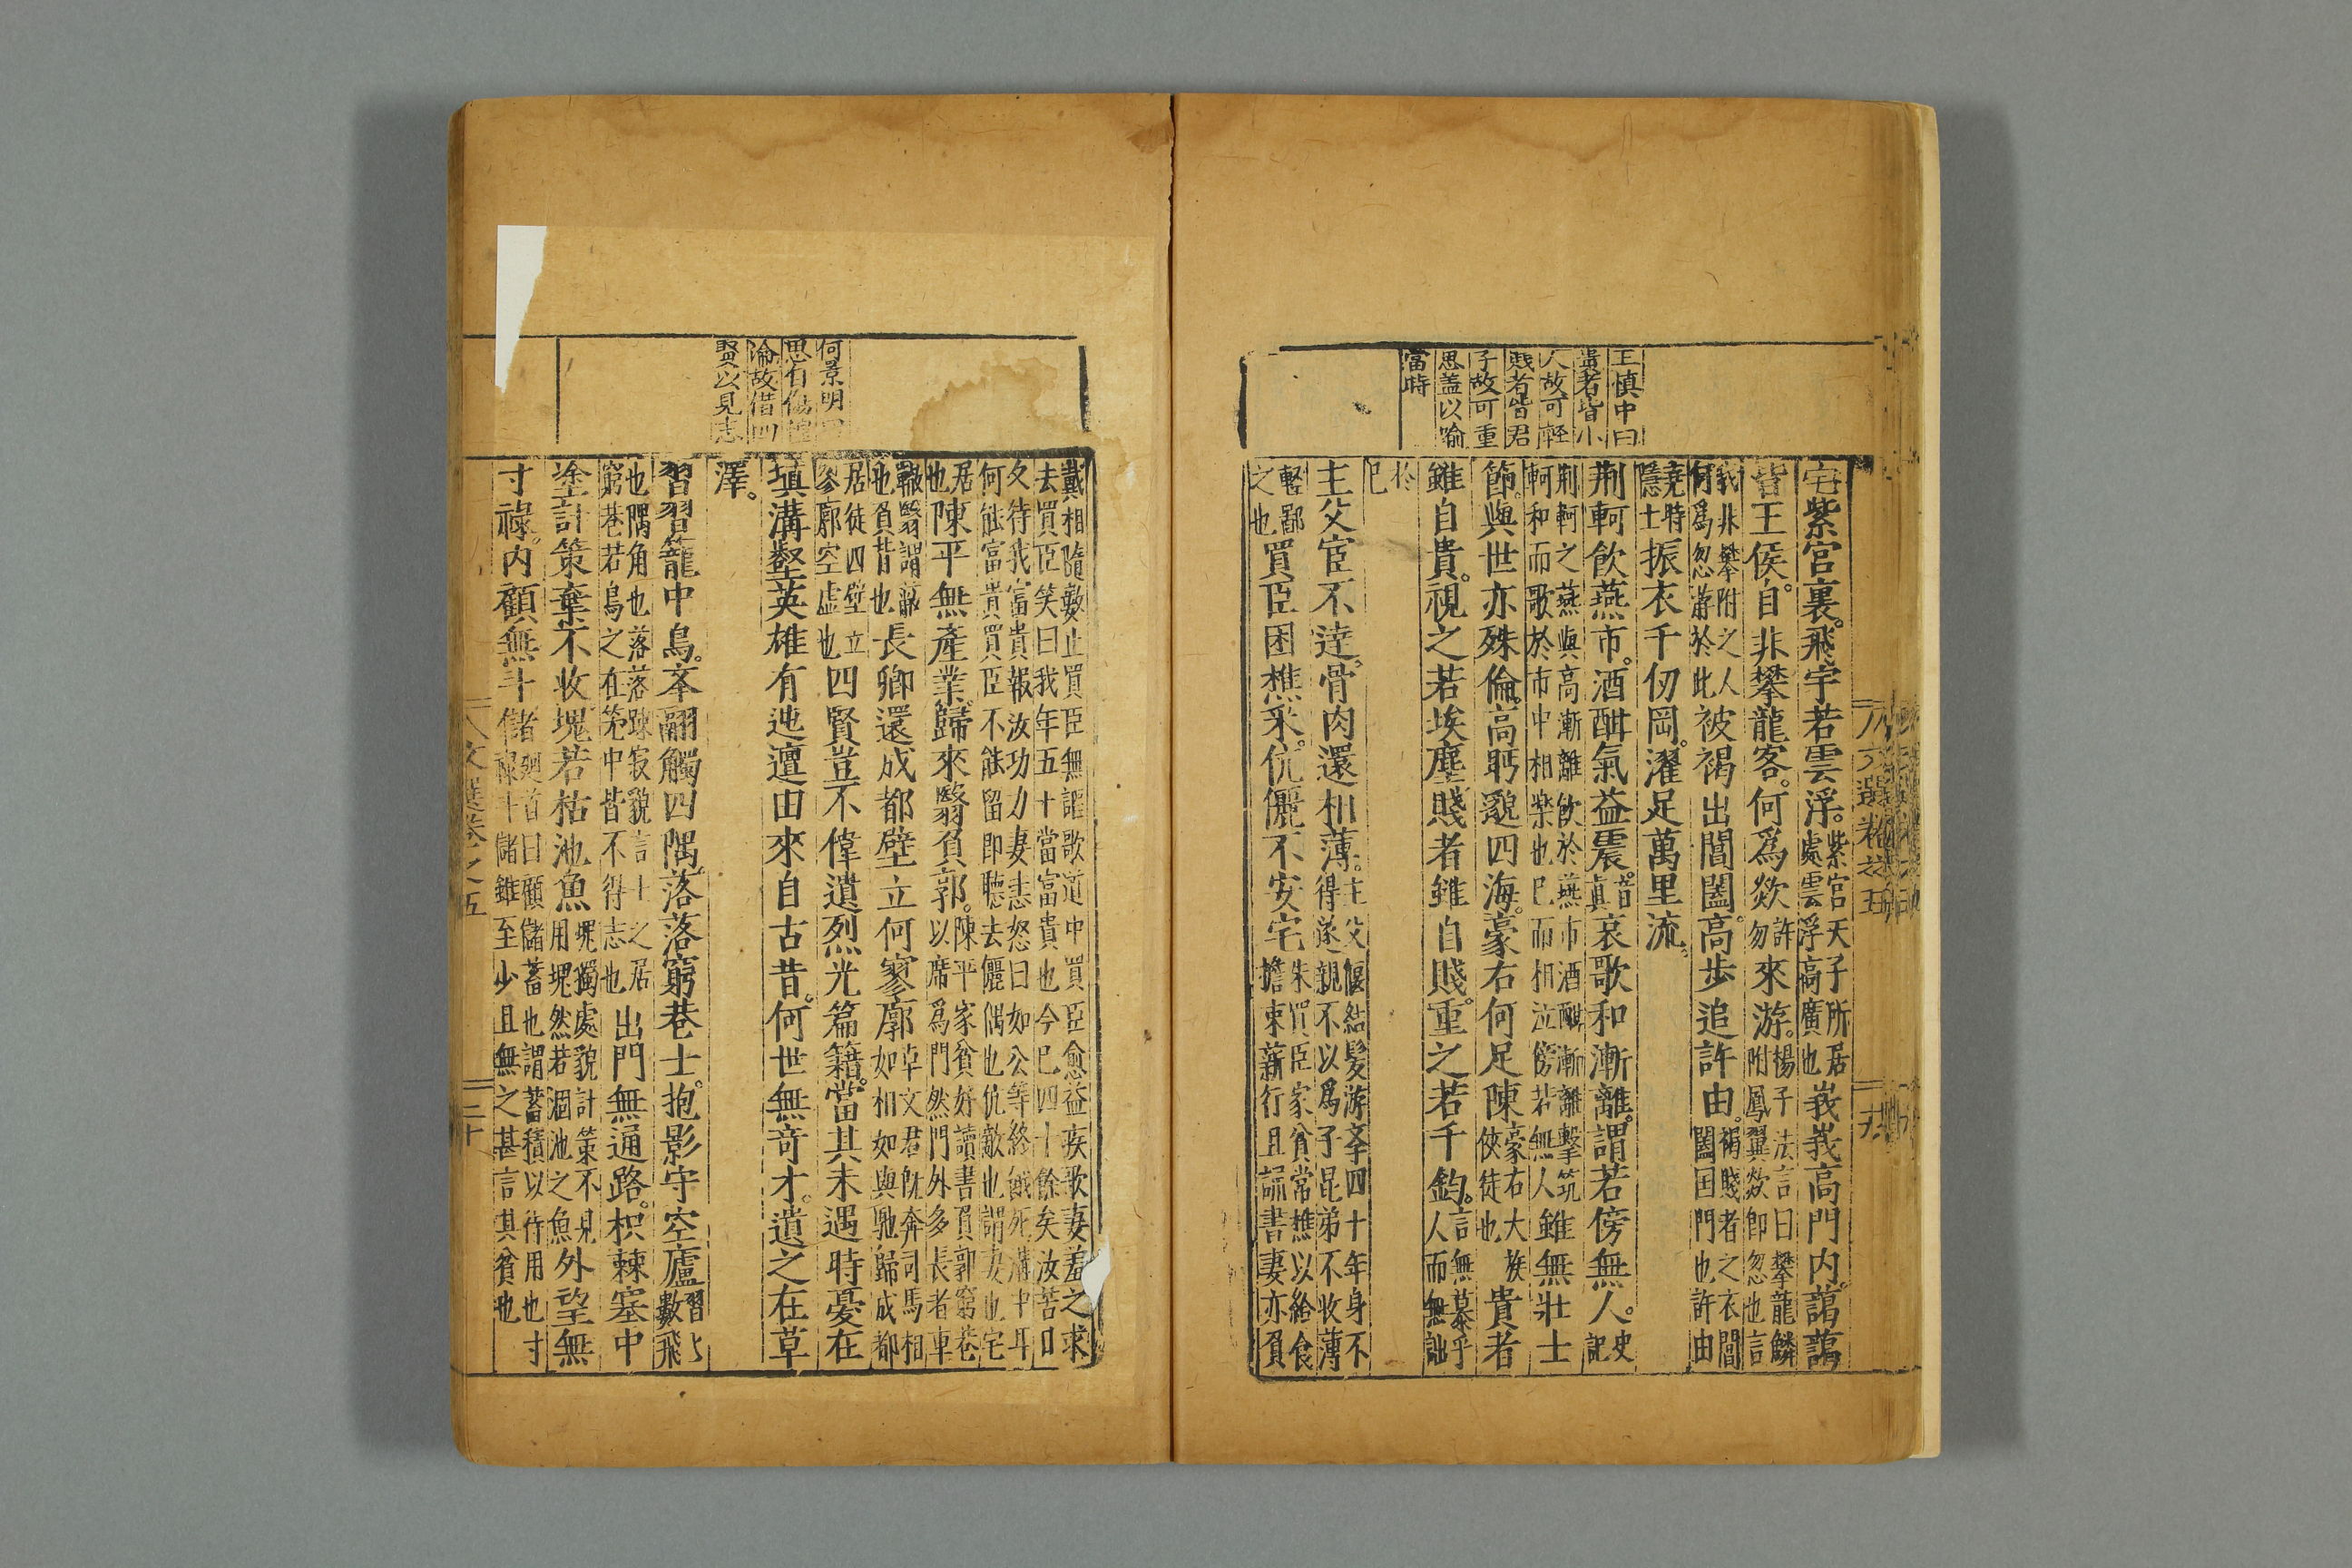 王慎中曰
貴者皆小
人故可輕
賤者皆君
子故可重
思蓋以喻
當時
宅紫宮裏。飛宇若雲浮。紫宮天子所居處雲浮高廣也峩峩高門內。藹藹
皆王侯。自非攀龍客。何爲欻許勿來游。楊子法言曰攀龍鱗附鳳翼欻卽忽也言
我非攀附之人何爲忽游於此被褐出閶闔。高步追許由。褐賤者之衣閶闔囯門也許由
堯時隱士振衣千仞岡。濯足萬里流。
荆軻飲燕市。酒酣氣益震。音眞哀歌和漸離。謂若傍無人。史記
荆軻之燕與高漸離飲於燕市酒酣漸離擊筑軻和而歌於市中相樂也已而相泣傍若無人雖無壯士
節。與世亦殊倫。高眄邈四海。豪右何足陳豪右大族俠徒也貴者
雖自貴。視之若埃塵。賤者雖自賤。重之若千鈞。言無慕乎人而無詘
於已
主父宦不逹。骨肉還相薄。主父偃結髮游斈四十年身不得遂親不以爲子昆弟不收薄
輕鄙之也買臣困樵采。伉儷不安宅朱買臣家貧常樵以給食擔束薪行且誦書妻亦負
何景明曰
思有傷
淪故借四
賢以見志
戴相隨數止買臣無謳歌道中買臣愈益疾歌妻羞之求
去買臣笑曰我年五十當富貴也今已四十餘矣汝苦日
久待我富貴報汝功力妻恚怒曰如公等終餓死溝中耳
何能富貴買臣不能留即聽去儷偶也伉敵也謂妻也宅
居也陳平無產業。歸來翳負郭。陳平家貧好讀書負郭窮巷以席爲門然門外多長者車
轍翳謂蔽也負背也長卿還成都壁立何寥廓草文君旣奔司馬相如相如與馳歸成都
居徒四壁立寥廓空虛也四賢豈不偉遺烈光篇籍。當其未遇時憂在
填溝壑英雄有迍邅由來自古昔。何世無奇才。遺之在草
澤。
習習籠中鳥。㪯翮觸四隅。落落窮巷士。抱影守空廬習〻數飛
也隅角也落落踈寂貌言士之居窮巷若鳥之在笼中皆不得志也出門無通路。枳棘塞中
塗計策棄不收塊若枯池魚塊獨處貌計策不見用塊然若涸池之魚外望無
寸祿。內顧無斗儲廻首曰顧儲蓄也謂蓄積以待用也寸祿斗儲雖至少且無之甚言其貧也
文選卷之五
二十